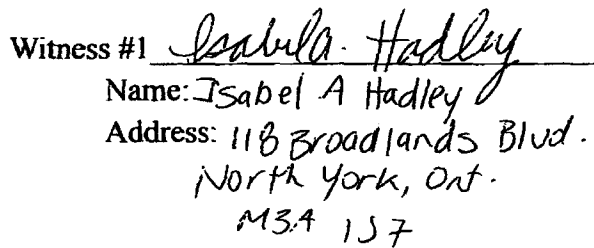 Witness #1 Isabel A. Hadley
Name: Isabel A Hadley
Address: 118 Broadlands Blvd.
North York, Ont.
M3A 1J7